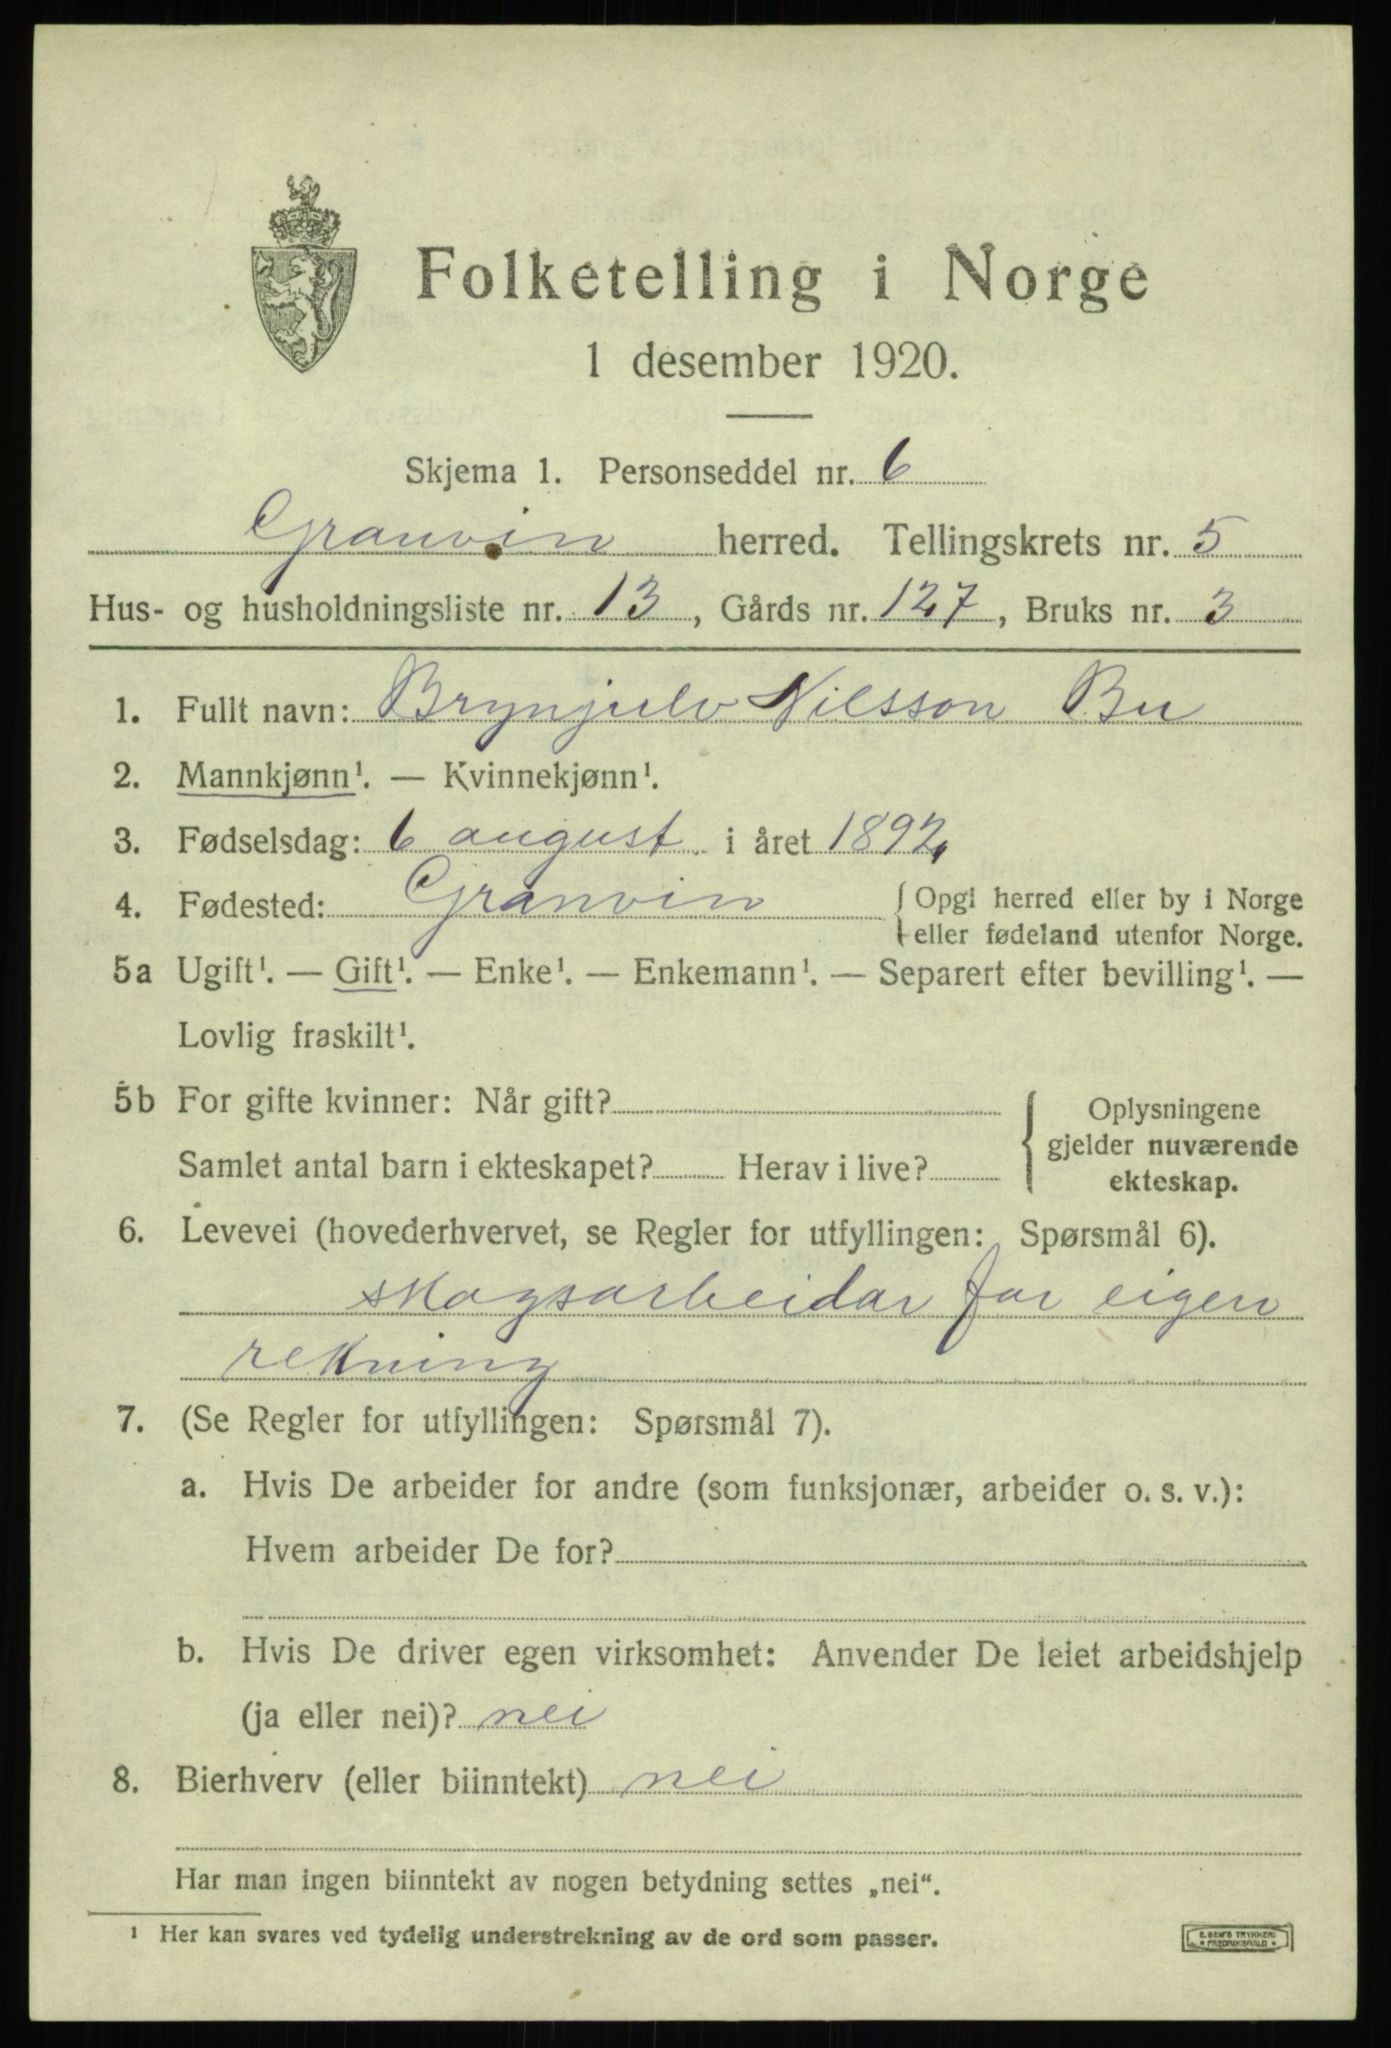 Folketelling i Norge
1 desember 1920.
Skjema 1. Personseddel nr. 6
Granvin herred. Tellingskrets nr. 5
Hus- og husholdningsliste nr. 13, Gårds nr. 127, Bruks nr. 3
1. Fullt navn: Brynjulv Nilsson Bu
2. Mannkjønn¹. — Kvinnekjønn¹.
3. Fødselsdag: 6 august i året 1892.
4. Fødested: Granvin { Opgi herred eller by i Norge
eller fødeland utenfor Norge.
5a Ugift¹. — Gift¹. — Enke¹. — Enkemann¹. — Separert efter bevilling¹. —
Lovlig fraskilt¹.
5b For gifte kvinner: Når gift?
Samlet antal barn i ekteskapet? Herav i live?
{ Oplysningene
gjelder nuværende
ekteskap.
6. Levevei (hovederhvervet, se Regler for utfyllingen: Spørsmål 6).
skogsarbeidar for eigen
rekning
7. (Se Regler for utfyllingen: Spørsmål 7).
a. Hvis De arbeider for andre (som funksjonær, arbeider o. s. v.):
Hvem arbeider De for?
b. Hvis De driver egen virksomhet: Anvender De leiet arbeidshjelp
(ja eller nei)? nei
8. Bierhverv (eller biinntekt) nei
Har man ingen biinntekt av nogen betydning settes „nei".
¹ Her kan svares ved tydelig understrekning av de ord som passer.
E. SEM'S TRYKKERI
* FREDRIKSHALD *